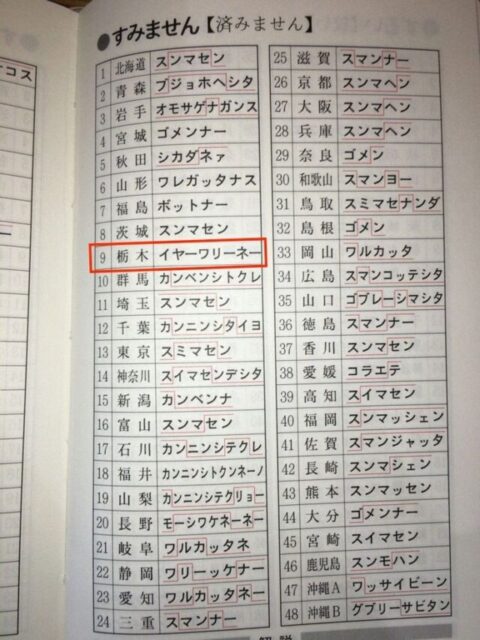 ●すみません【済みません】
1 北海道 スンマセン
2 青森 ブジョホヘシタ
3 岩手 オモサゲナガンス
4 宮城 ゴメンナー
5 秋田 シカダネァ
6 山形 ワレガッタナス
7 福島 ボットナー
8 茨城 スンマセン
9 栃木 イヤーワリーネー
10 群馬 カンベンシトクレ
11 埼玉 スンマセン
12 千葉 カンニンシタイヨ
13 東京 スミマセン
14 神奈川 スイマセンデシタ
15 新潟 カンベンナ
16 富山 スンマセン
17 石川 カンニンシテクレ
18 福井 カンニンシトクンネーノ
19 山梨 カンニンシテクリョー
20 長野 モーシワケネーネー
21 岐阜 ワルカッタネ
22 静岡 ワリーッケナー
23 愛知 ワルカッタネー
24 三重 スマンナー
25 滋賀 スマンナー
26 京都 スンマヘン
27 大阪 スンマヘン
28 兵庫 スンマヘン
29 奈良 ゴメン
30 和歌山 スマンヨー
31 鳥取 スミマセナンダ
32 島根 ゴメン
33 岡山 ワルカッタ
34 広島 スマンコッテシタ
35 山口 ゴブレーシマシタ
36 徳島 スマンナー
37 香川 スンマセン
38 愛媛 コラエテ
39 高知 スイマセン
40 福岡 スンマッシェン
41 佐賀 スマンジャッタ
42 長崎 スンマシェン
43 熊本 スンマッセン
44 大分 ゴメンナー
45 宮崎 スイマセン
46 鹿児島 スンモハン
47 沖縄A ワッサイビーン
48 沖縄B グブリーサビタン